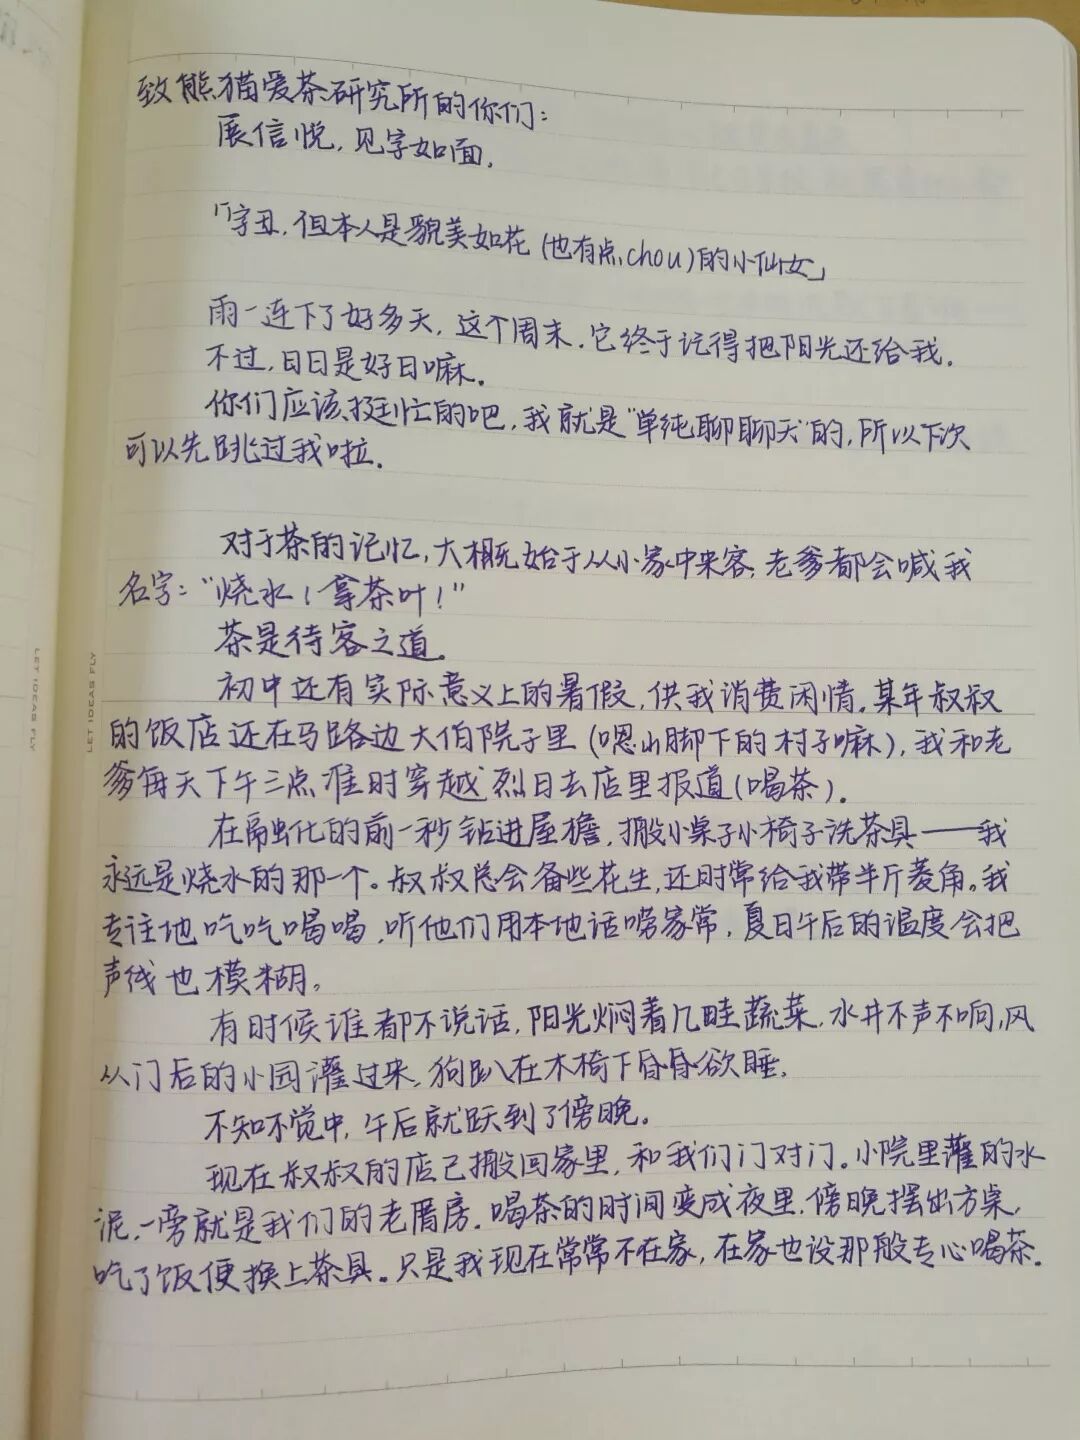 致熊猫爱茶研究所的你们：
展信悦，见字如面。
「字丑，但本人是貌美如花（也有点chou）的小仙女」
雨一连下了好多天，这个周末，它终于记得把阳光还给我。
不过，日日是好日嘛。
你们应该挺忙的吧，我就是“单纯聊聊天”的，所以下次
可以先跳过我啦。
对于茶的记忆，大概始于从小家中来客，老爹都会喊我
名字：“烧水！拿茶叶！”
茶是待客之道。
初中还有实际意义上的暑假，供我消费闲情。某年叔叔
的饭店还在马路边大伯院子里（嗯山脚下的村子嘛），我和老
爹每天下午三点准时穿越烈日去店里报道（喝茶）。
在融化的前一秒钻进屋檐，搬小桌子小椅子洗茶具——我
永远是烧水的那一个。叔叔总会备些花生，还时常给我带半斤菱角。我
专注地吃吃喝喝，听他们用本地话唠家常，夏日午后的温度会把
声线也模糊。
有时候谁都不说话，阳光焖着几畦蔬菜，水井不声不响，风
从门后的小园灌过来，狗趴在木椅下昏昏欲睡。
不知不觉中，午后就跃到了傍晚。
现在叔叔的店已搬回家里，和我们门对门。小院里灌的水
泥，一旁就是我们的老厝房。喝茶的时间变成夜里，傍晚摆出方桌，
吃了饭便换上茶具。只是我现在常常不在家，在家也没那般专心喝茶。
LET IDEAS FLY
LET IDEAS FLY